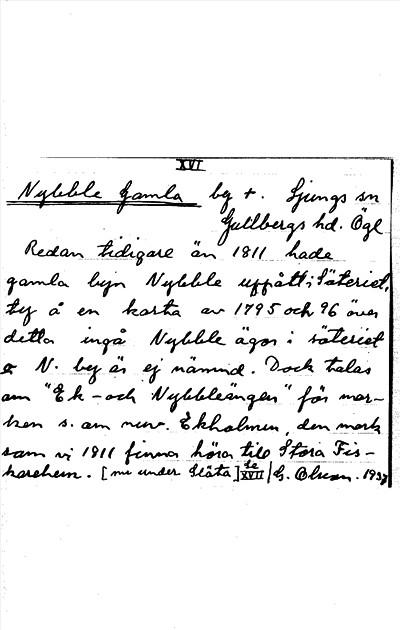 XVI
Nybble Gamla by +. Ljungs sn
Gullbergs hd. Ögl
Redan tidigare än 1811 hade
gamla byn Nybble uppått i Säteriet,
ty å en karta av 1795 och 96 över
detta ingå Nybble ägor i säteriet
N. by är ej nämnd. Dock talas
om "Ek- och Nybbleängen" för mar-
ken s. om nuv. Ekholmen, den mark
som vi 1811 finna höra till Stora Fis-
karehem. [nu under Släta] Se XVII / G. Olson. 1937